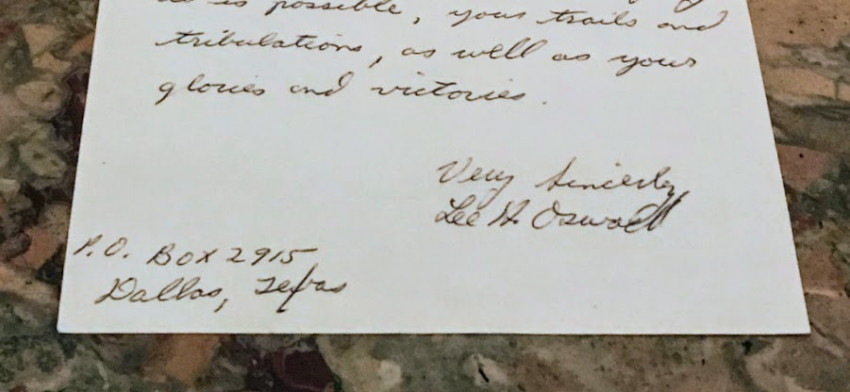 is possible, your trails and
tribulations, as well as your
glories and victories.
Very Sincerly,
Lee H. Oswald
P.O. Box 2915
Dallas, Texas